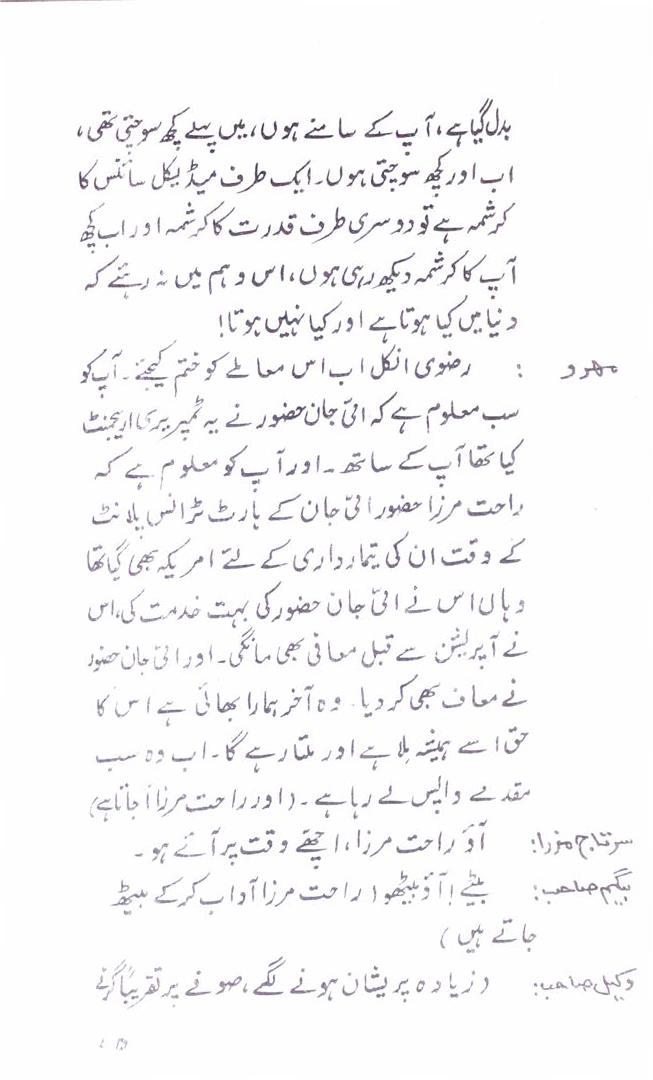 بدل گیا ہے، آپ کے سامنے ہوں، میں پہلے کچھ سوچتی تھی،
اب اور کچھ سوچتی ہوں۔ ایک طرف میڈیکل سائنس کا
کرشمہ ہے تو دوسری طرف قدرت کا کرشمہ اور اب کچھ
آپ کا کرشمہ دیکھ رہی ہوں، اس وہم میں نہ رہئے کہ
دنیا میں کیا ہوتا ہے اور کیا نہیں ہوتا!
مہرو : رضوی انکل اب اس معاملے کو ختم کیجئے۔ آپ کو
سب معلوم ہے کہ امّی جان حضور نے یہ ٹمپریری اریجمنٹ
کیا تھا آپ کے ساتھ۔ اور آپ کو معلوم ہے کہ
راحت مرزا حضور امّی جان کے ہارٹ ٹرانس پلانٹ
کے وقت ان کی تیمارداری کے لئے امریکہ بھی گیا تھا
وہاں اس نے امّی جان حضور کی بہت خدمت کی، اس
نے آپریشن سے قبل معافی بھی مانگی۔ اور امّی جان حضور
نے معاف بھی کر دیا۔ وہ آخر ہمارا بھائی ہے اس کا
حق اسے ہمیشہ ملا ہے اور ملتا رہے گا۔ اب وہ سب
مقدمے واپس لے رہا ہے۔ (اور راحت مرزا آجاتا ہے)
سرتاج مرزا: آؤ راحت مرزا، اچھے وقت پر آئے ہو۔
بیگم صاحب: بیٹے! آؤ بیٹھو (راحت مرزا آداب کر کے بیٹھ
جاتے ہیں)
وکیل صاحب: (زیادہ پریشان ہونے لگے، صوفے پر تقریباً گرنے